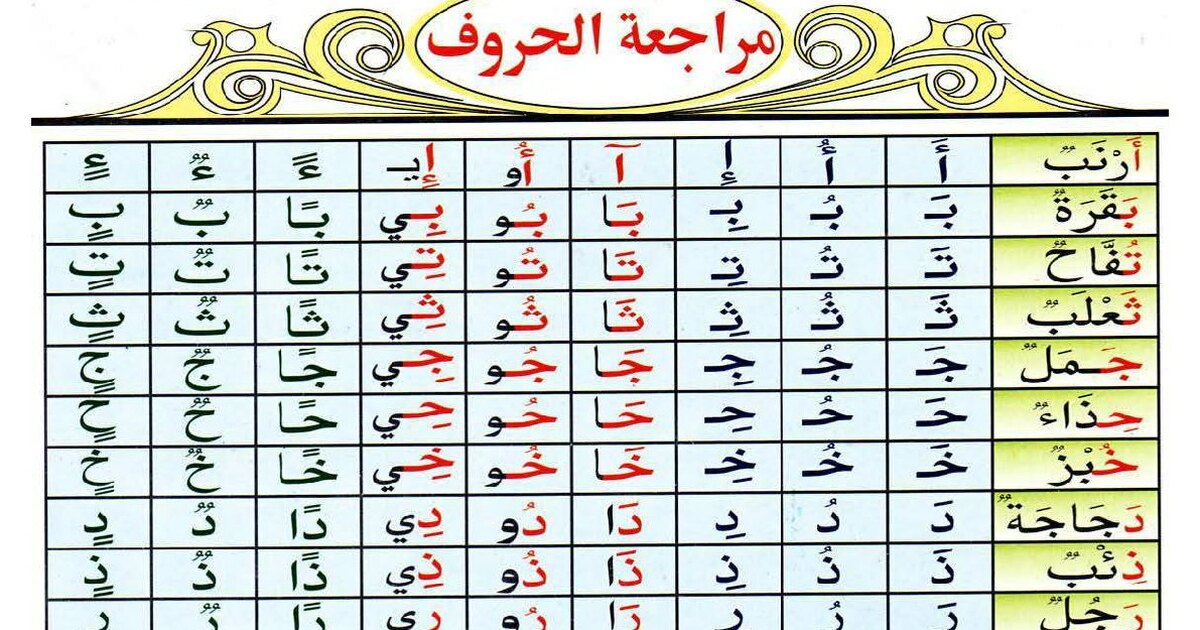 مراجعة الحروف
أَرْنَبٌ أَ أُ إِ آ أُو إِيـ ءً ءٌ ءٍ
بَقَرَةٌ بَـ بُـ بِـ بَـا بُـو بِـي بًـا بٌ بٍ
تُفَّاحٌ تَـ تُـ تِـ تَـا تُـو تِـي تًـا تٌ تٍ
ثَعْلَبٌ ثَـ ثُـ ثِـ ثَـا ثُـو ثِـي ثًـا ثٌ ثٍ
جَـمَلٌ جَـ جُـ جِـ جَـا جُـو جِـي جًـا جٌ جٍ
حِذَاءٌ حَـ حُـ حِـ حَـا حُـو حِـي حًـا حٌ حٍ
خُبْزٌ خَـ خُـ خِـ خَـا خُـو خِـي خًـا خٌ خٍ
دَجَاجَةٌ دَ دُ دِ دَا دُو دِي دًا دٌ دٍ
ذِئْبٌ ذَ ذُ ذِ ذَا ذُو ذِي ذًا ذٌ ذٍ
رَجُلٌ رَ رُ ر رَا رُو ري رًا رٌ ر